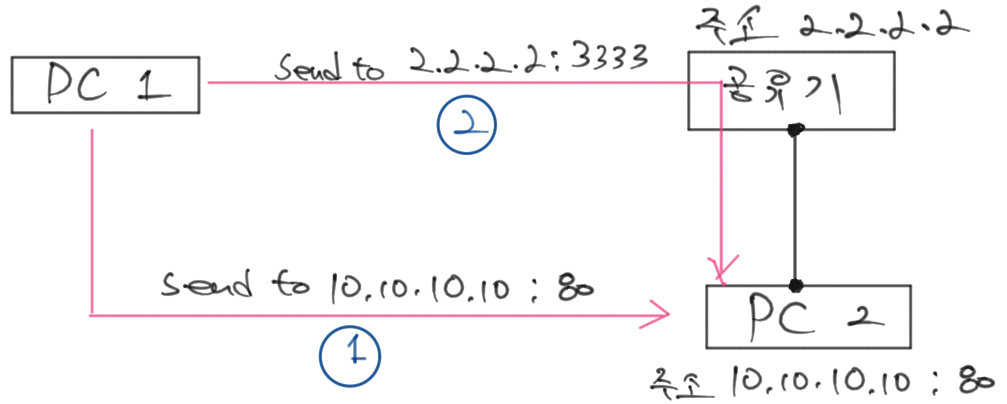 주소 2.2.2.2
PC 1
send to 2.2.2.2:3333
공유기
2
send to 10.10.10.10 : 80
PC 2
1
주소 10.10.10.10 : 80